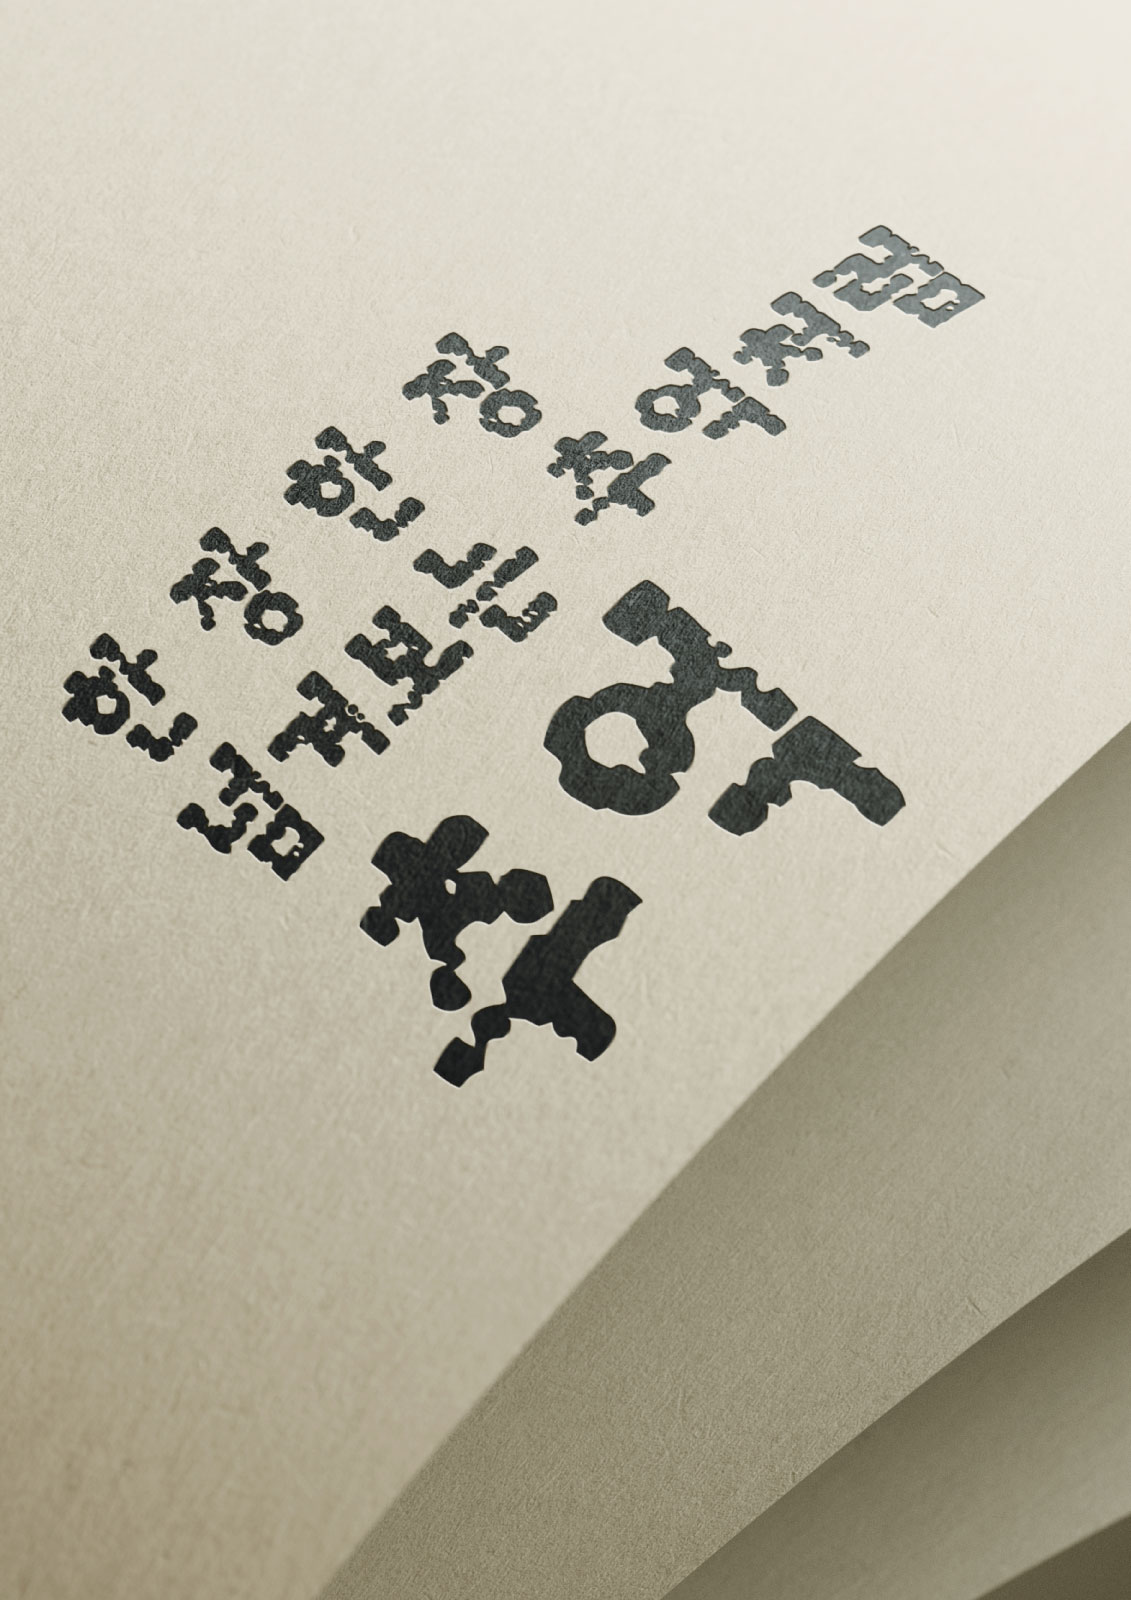 한 장 한 장
넘겨 보는 추억처럼
추억